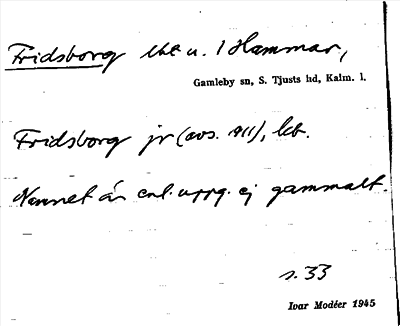 Fridsborg lht u. 1 Hammar,
Gamleby sn, S. Tjusts hd, Kalm. l.
Fridsborg jr (avs. 1911), lht.
Namnet är enl. uppg. ej gammalt.
s. 33
Ivar Modéer 1945